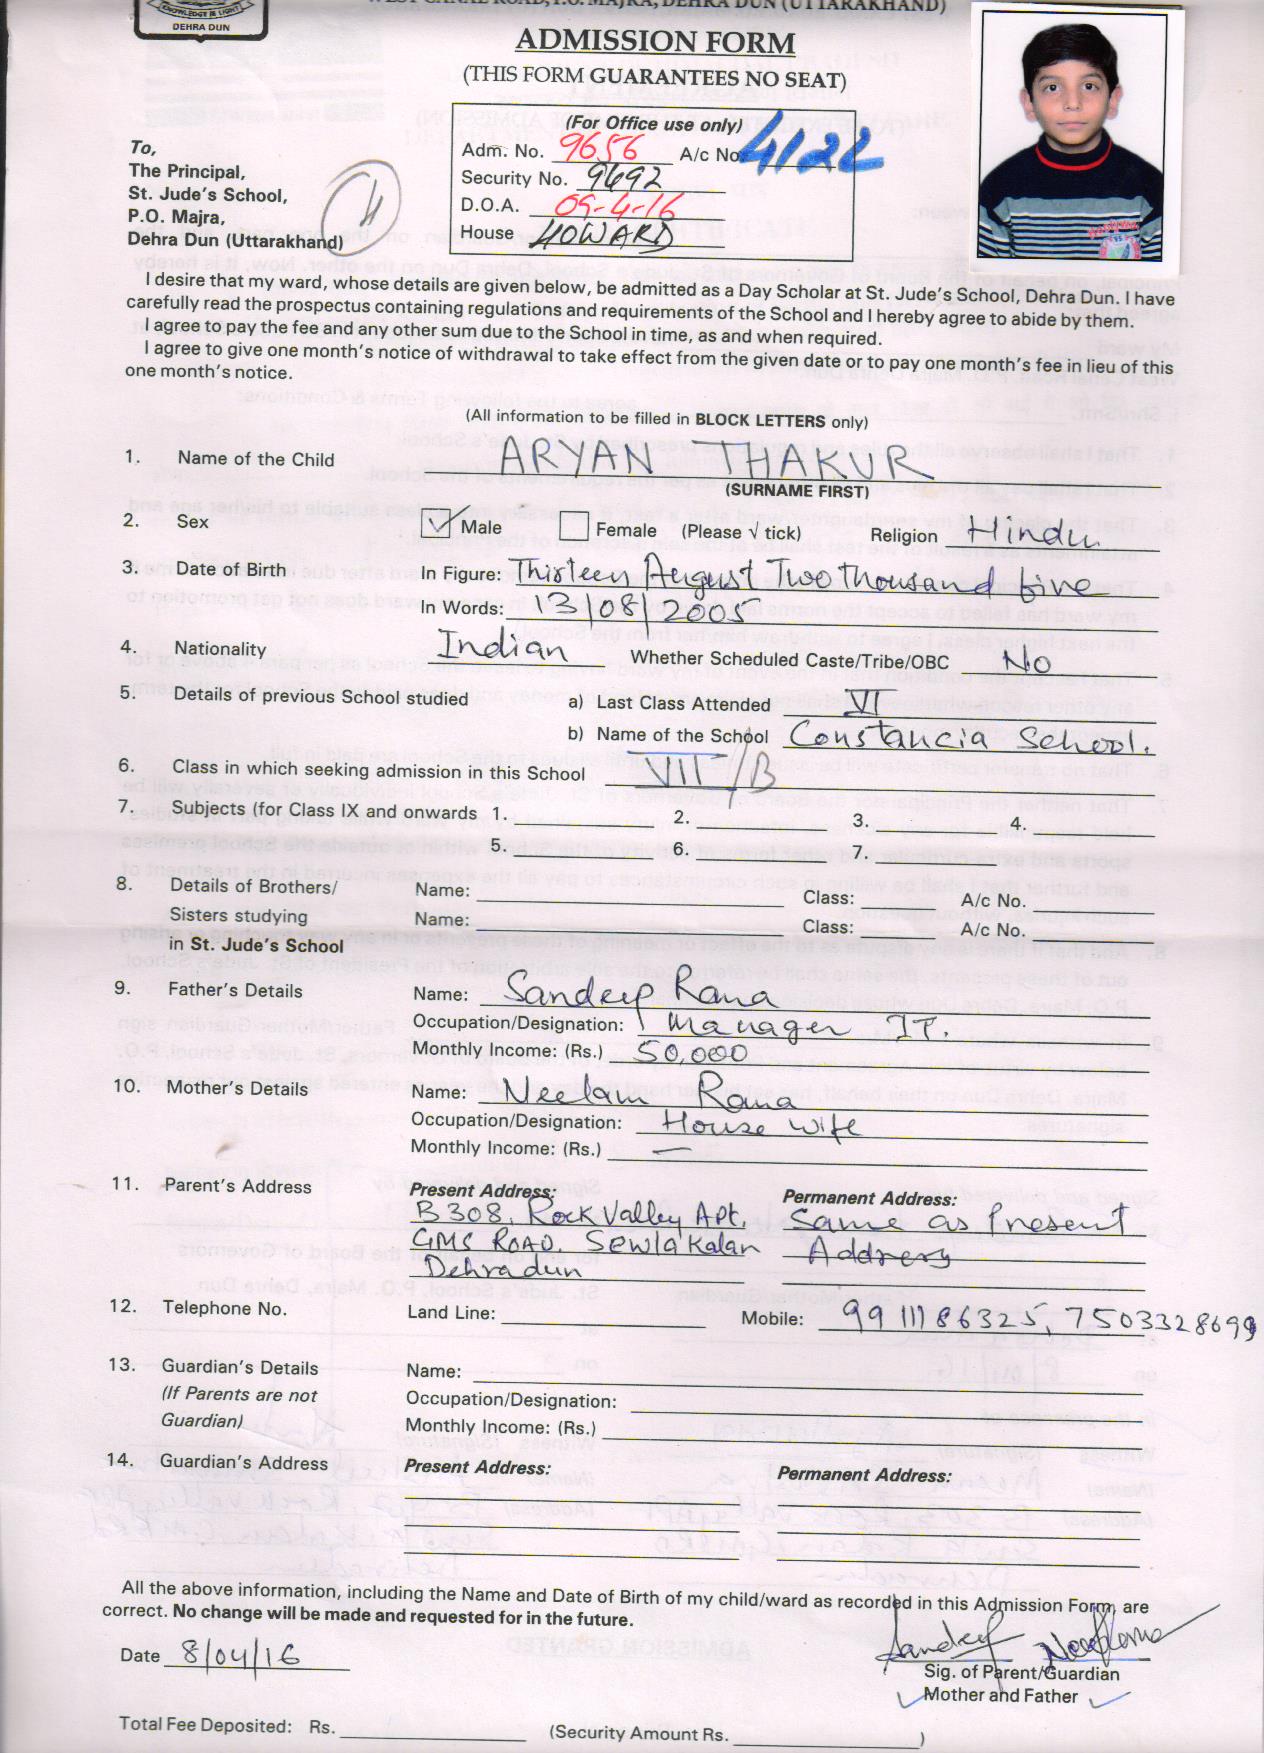 KNOWLEDGE IS LIGHT
DEHRA DUN
WEST CANAL ROAD, P.O. MAJRA, DEHRA DUN (UTTARAKHAND)
ADMISSION FORM
(THIS FORM GUARANTEES NO SEAT)
(For Office use only)
Adm. No. 9656 A/c No. 4122
Security No. 9692
D.O.A. 09-4-16
House HOWARD
To,
The Principal,
St. Jude's School,
P.O. Majra,
Dehra Dun (Uttarakhand)
I desire that my ward, whose details are given below, be admitted as a Day Scholar at St. Jude's School, Dehra Dun. I have
carefully read the prospectus containing regulations and requirements of the School and I hereby agree to abide by them.
I agree to pay the fee and any other sum due to the School in time, as and when required.
I agree to give one month's notice of withdrawal to take effect from the given date or to pay one month's fee in lieu of this
one month's notice.
(All information to be filled in BLOCK LETTERS only)
1. Name of the Child ARYAN THAKUR
(SURNAME FIRST)
2. Sex ✓ Male Female (Please √ tick) Religion Hindu
3. Date of Birth In Figure: Thirteen August Two thousand five
In Words: 13/08/2005
4. Nationality Indian Whether Scheduled Caste/Tribe/OBC No
5. Details of previous School studied a) Last Class Attended VI
b) Name of the School Constancia School.
6. Class in which seeking admission in this School VII/B
7. Subjects (for Class IX and onwards 1. 2. 3. 4.
5. 6. 7.
8. Details of Brothers/ Name: Class: A/c No.
Sisters studying Name: Class: A/c No.
in St. Jude's School
9. Father's Details Name: Sandeep Rana
Occupation/Designation: Manager IT.
Monthly Income: (Rs.) 50,000
10. Mother's Details Name: Neelam Rana
Occupation/Designation: House wife
Monthly Income: (Rs.) —
11. Parent's Address Present Address: Permanent Address:
B 308, Rock Valley Apt, Same as Present
GMS ROAD, SEWlA Kalan Address
Dehradun
12. Telephone No. Land Line: Mobile: 9911186325, 7503328699
13. Guardian's Details Name:
(If Parents are not Occupation/Designation:
Guardian) Monthly Income: (Rs.)
14. Guardian's Address Present Address: Permanent Address:
All the above information, including the Name and Date of Birth of my child/ward as recorded in this Admission Form, are
correct. No change will be made and requested for in the future.
Date 8/04/16 Sandeep
Sig. of Parent/Guardian
✓ Mother and Father ✓
Total Fee Deposited: Rs. (Security Amount Rs. )